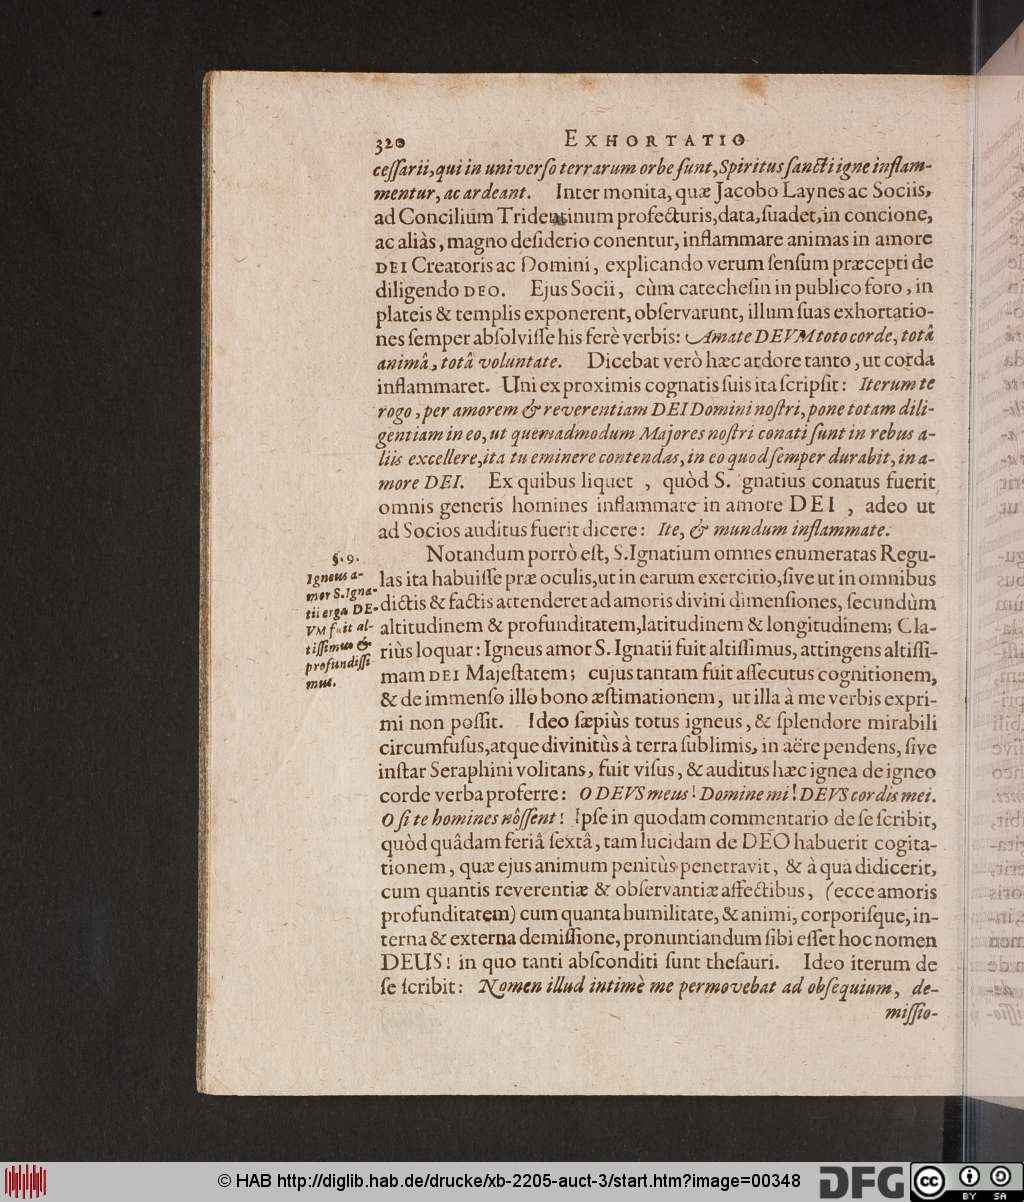 320 EXHORTATIO
ceſſarii, qui in univerſo terrarum orbe ſunt, Spiritus ſancti igne inflam-
mentur, ac ardeant. Inter monita, quæ Jacobo Laynes ac Sociis,
ad Concilium Tridentinum profecturis, data, ſuadet, in concione,
ac aliàs, magno deſiderio conentur, inflammare animas in amore
DEI Creatoris ac Domini, explicando verum ſenſum præcepti de
diligendo DEO. Ejus Socii, cùm catecheſin in publico foro, in
plateis & templis exponerent, obſervarunt, illum ſuas exhortatio-
nes ſemper abſolviſſe his ferè verbis: Amate DEVM toto corde, totâ
animâ, totâ voluntate. Dicebat verò hæc ardore tanto, ut corda
inflammaret. Uni ex proximis cognatis ſuis ita ſcripſit: Iterum te
rogo, per amorem & reverentiam DEI Domini noſtri, pone totam dili-
gentiam in eo, ut quemadmodum Majores noſtri conati ſunt in rebus a-
liis excellere, ita tu eminere contendas, in eo quod ſemper durabit, in a-
more DEI. Ex quibus liquet , quòd S. gnatius conatus fuerit
omnis generis homines inflammare in amore DEI , adeo ut
ad Socios auditus fuerit dicere: Ite, & mundum inflammate.
Notandum porrò eſt, S. Ignatium omnes enumeratas Regu-
las ita habuiſſe præ oculis, ut in earum exercitio, ſive ut in omnibus
dictis & factis attenderet ad amoris divini dimenſiones, ſecundùm
altitudinem & profunditatem, latitudinem & longitudinem; Cla-
riùs loquar: Igneus amor S. Ignatii fuit altiſſimus, attingens altiſſi-
mam DEI Majeſtatem; cujus tantam fuit aſſecutus cognitionem,
& de immenſo illo bono æſtimationem, ut illa à me verbis expri-
mi non poſſit. Ideo ſæpiùs totus igneus, & ſplendore mirabili
circumfuſus, atque divinitùs à terra ſublimis, in aëre pendens, ſive
inſtar Seraphini volitans, fuit viſus, & auditus hæc ignea de igneo
corde verba proferre: O DEVS meus! Domine mi! DEVS cordis mei.
O ſi te homines nôſſent! Ipſe in quodam commentario de ſe ſcribit,
quòd quâdam feriâ ſextâ, tam lucidam de DEO habuerit cogita-
tionem, quæ ejus animum penitùs penetravit, & à qua didicerit,
cum quantis reverentiæ & obſervantiæ affectibus, (ecce amoris
profunditatem) cum quanta humilitate, & animi, corporiſque, in-
terna & externa demiſſione, pronuntiandum ſibi eſſet hoc nomen
DEUS! in quo tanti abſconditi ſunt theſauri. Ideo iterum de
ſe ſcribit: Nomen illud intimè me permovebat ad obſequium, de-
miſſio-
§. 9.
Igneus a-
mor S. Igna-
tii erga DE-
VM fuit al-
tiſſimus &
profundiſſi
mus.
© HAB http://diglib.hab.de/drucke/xb-2205-auct-3/start.htm?image=00348
DFG
cc
BY SA